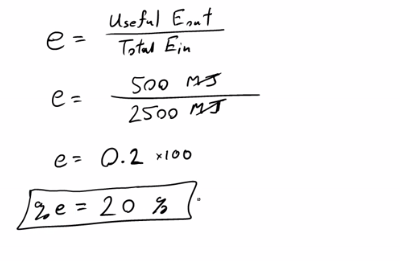 e = Useful Eout / Total Ein
e = 500 MJ / 2500 MJ
e = 0.2 ×100
%e = 20 %